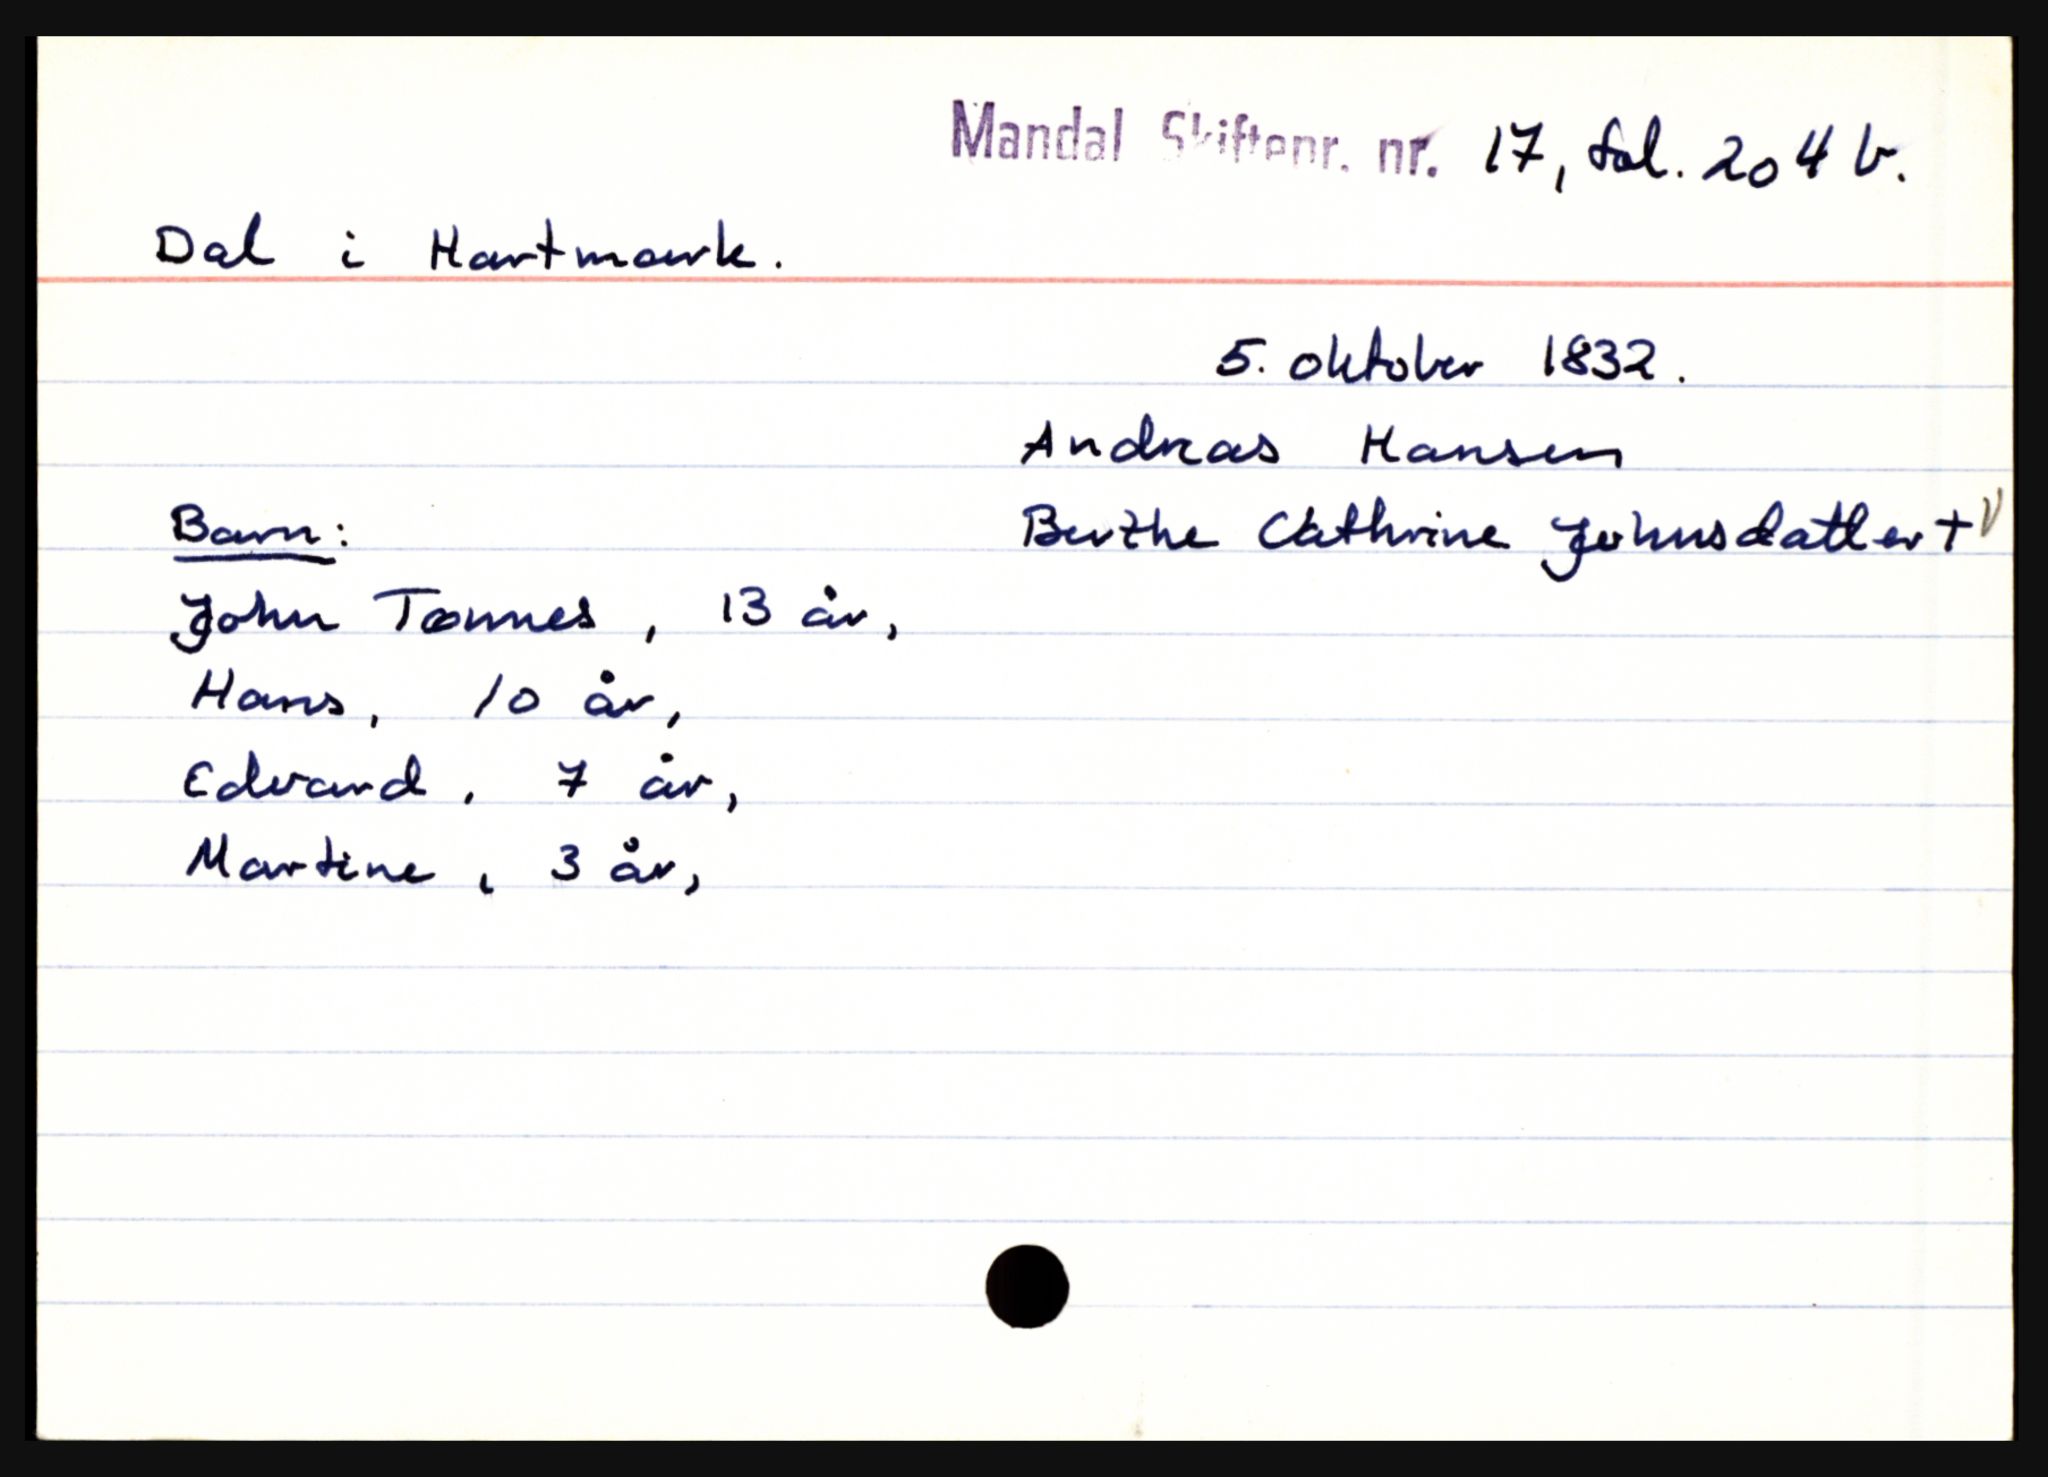 Mandal Skiftepr. nr. 17, fol. 204 b.
Dal i Hartmark.
5. oktober 1832.
Andreas Hansen
Barn: Berthe Cathrine Johnsdatter +
John Tønnes, 13 år,
Hans, 10 år,
Edvard, 7 år,
Martine, 3 år,